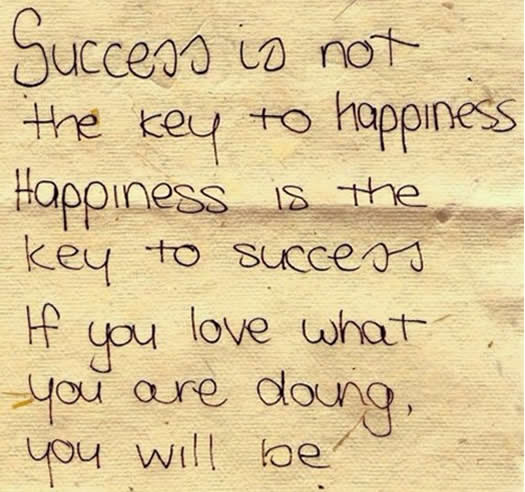 Success is not
the key to happiness
Happiness is the
key to success
If you love what
you are doing,
you will be